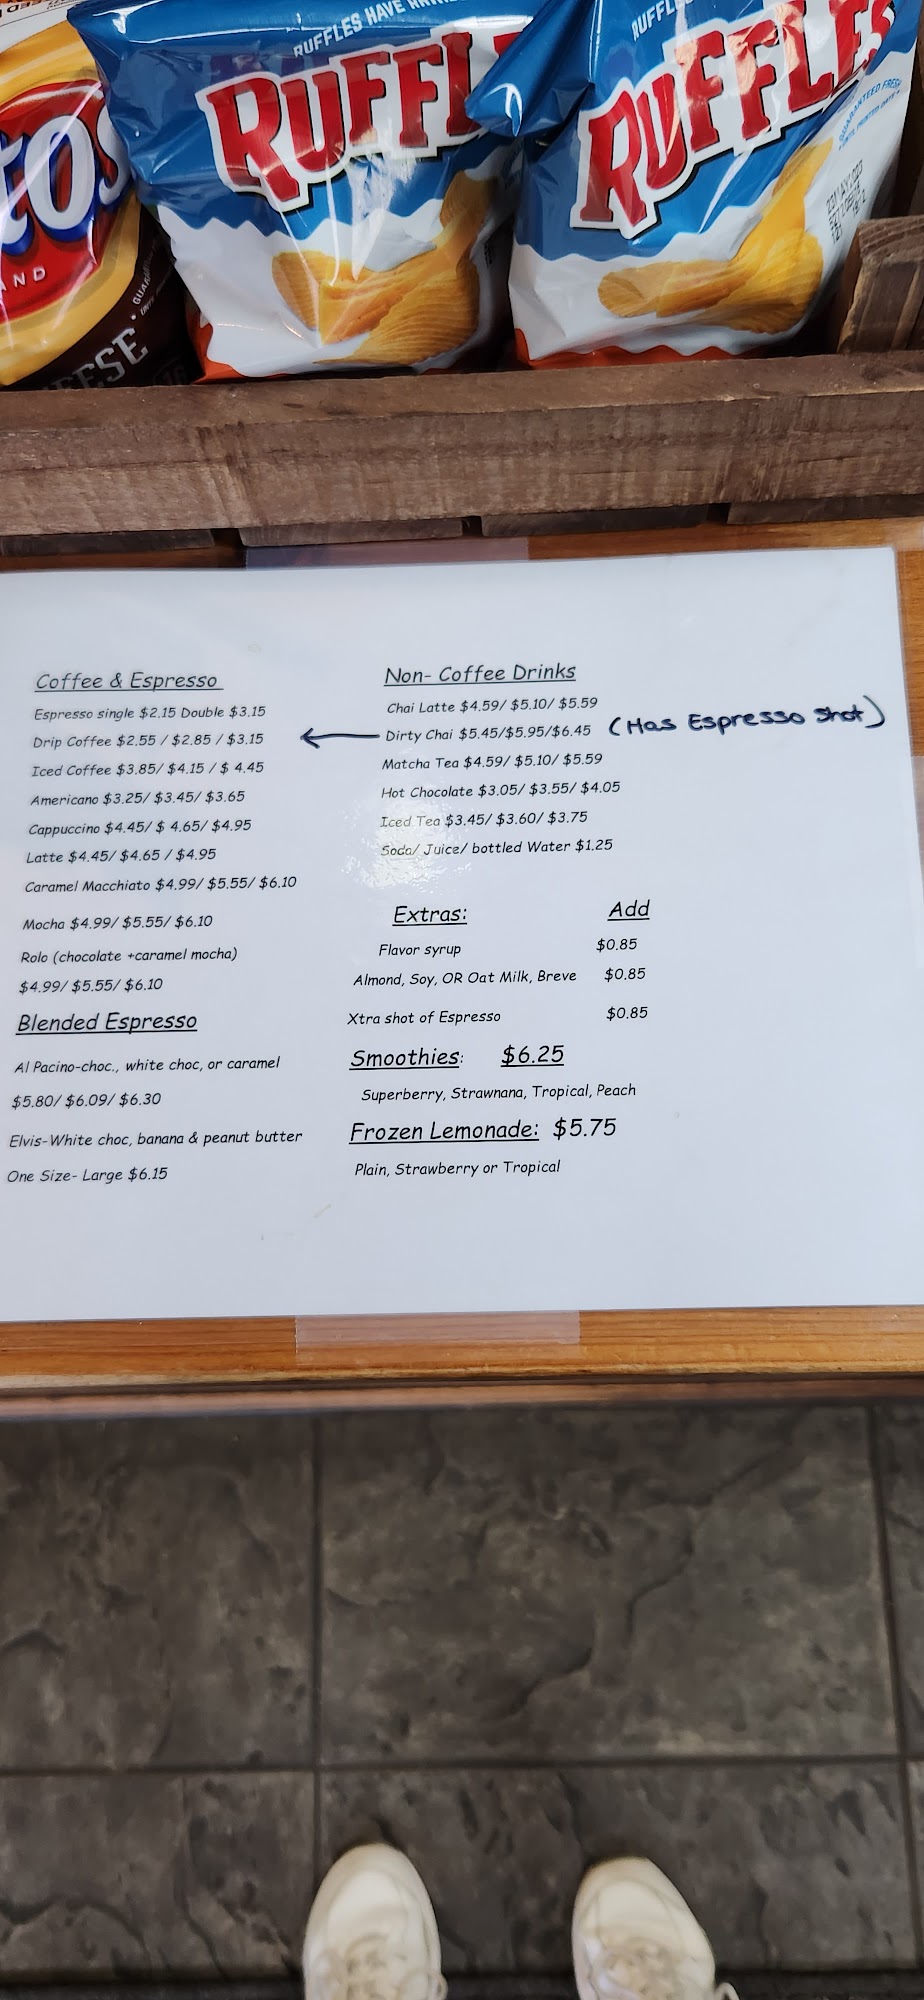 RUFFLES HAVE
RUFFL
RUFFLES
GUARANTEED FRESH
tos
AND
ESE
Coffee & Espresso
Espresso single $2.15 Double $3.15
Drip Coffee $2.55 / $2.85 / $3.15
Iced Coffee $3.85/ $4.15 / $ 4.45
Americano $3.25/ $3.45/ $3.65
Cappuccino $4.45/ $ 4.65/ $4.95
Latte $4.45/ $4.65 / $4.95
Caramel Macchiato $4.99/ $5.55/ $6.10
Mocha $4.99/ $5.55/ $6.10
Rolo (chocolate +caramel mocha)
$4.99/ $5.55/ $6.10
Blended Espresso
Al Pacino-choc., white choc, or caramel
$5.80/ $6.09/ $6.30
Elvis-White choc, banana & peanut butter
One Size- Large $6.15
Non- Coffee Drinks
Chai Latte $4.59/ $5.10/ $5.59
Dirty Chai $5.45/$5.95/$6.45 (Has Espresso shot)
Matcha Tea $4.59/ $5.10/ $5.59
Hot Chocolate $3.05/ $3.55/ $4.05
Iced Tea $3.45/ $3.60/ $3.75
Soda/ Juice/ bottled Water $1.25
Extras: Add
Flavor syrup $0.85
Almond, Soy, OR Oat Milk, Breve $0.85
Xtra shot of Espresso $0.85
Smoothies: $6.25
Superberry, Strawnana, Tropical, Peach
Frozen Lemonade: $5.75
Plain, Strawberry or Tropical